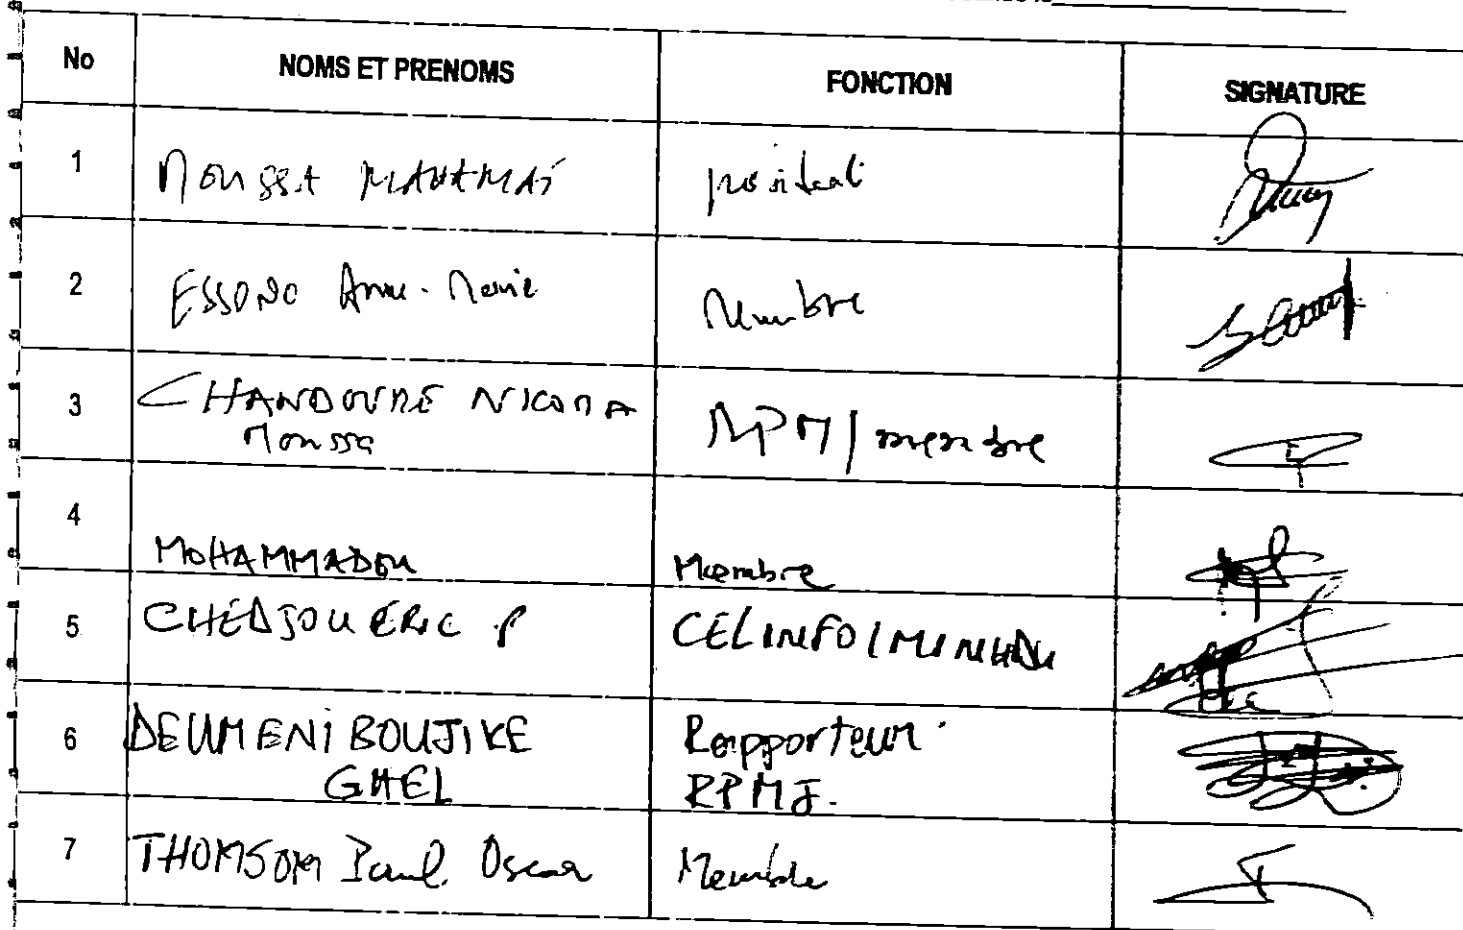 No NOMS ET PRENOMS FONCTION SIGNATURE
1 MOUSSA MAHAMAT président
2 ESSONO Anne-Marie Membre
3 CHANDOURE NICODA RPM/membre
Moussa
4 MOHAMMADOU Membre
5 CHEDJOU ERIC P CELINFO/MINHDU
6 DEUMENI BOUJIKE Rapporteur
GHEL RPMJ.
7 THOMSOM Paul Oscar Membre